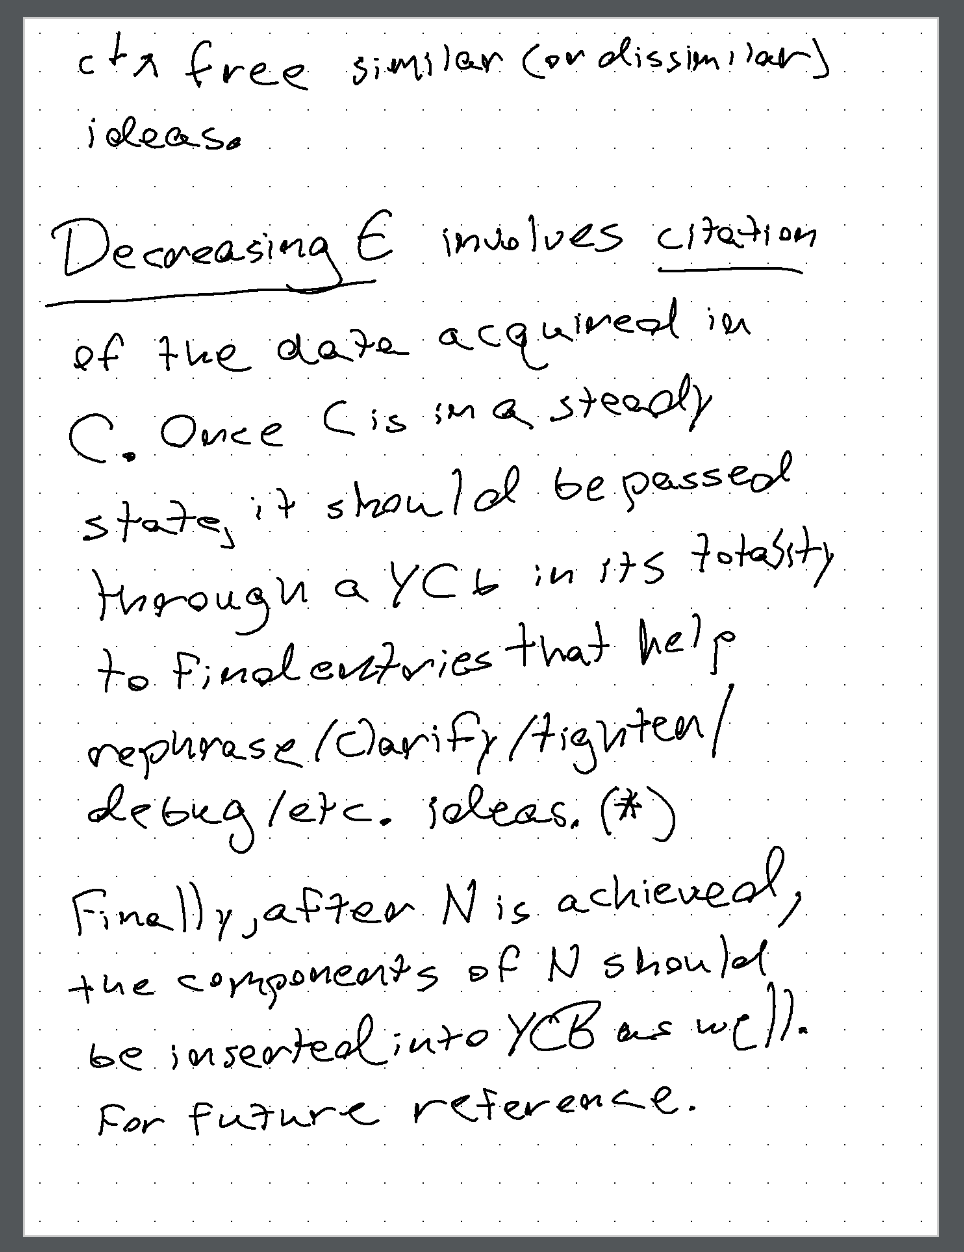 ctx free similar (or dissimilar)
ideas.
Decreasing E involves citation
of the data acquired in
C. Once C is in a steady
state, it should be passed
through a YCb in its totality
to find entries that help
rephrase/clarify/tighten/
debug/etc. ideas. (*)
Finally, after N is achieved,
the components of N should
be inserted into YCB as well.
For future reference.